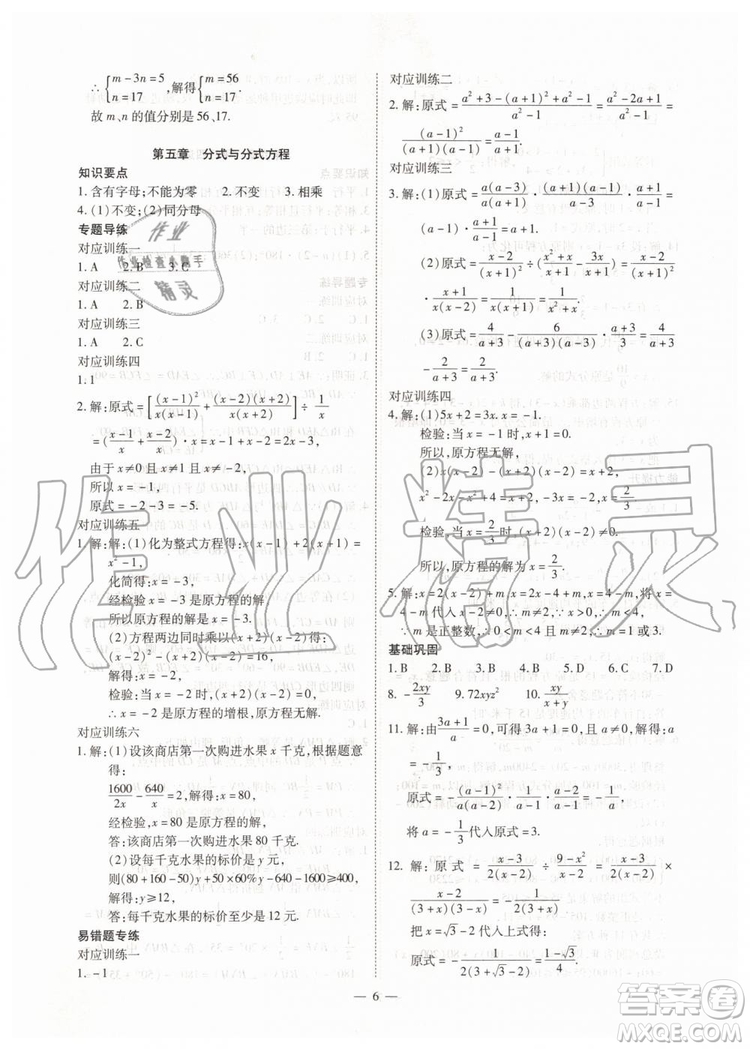 ∴ {m-3n=5 n=17, 解得 {m=56 n=17.
故 m、n 的值分别是 56、17.
第五章 分式与分式方程
知识要点
1. 含有字母;不能为零 2. 不变 3. 相乘
4. (1)不变;(2)同分母
专题导练
对应训练一
1. A 2. B 3. C
对应训练三
1. A 2. C
对应训练四
1. 1
2. 解:原式=[(x-1)²/x(x-1)+(x-2)(x+2)/x(x+2)]÷1/x
=(x-1/x+x-2/x)·x=x-1+x-2=2x-3,
由于 x≠0 且 x≠1 且 x≠-2,
所以 x=-1,
原式=-2-3=-5.
对应训练五
1. 解:解:(1)化为整式方程得:x(x-1)+2(x+1)=
x²-1,
化简得:x=-3,
经检验 x=-3 是原方程的解
所以原方程的解为 x=-3.
(2)方程两边同时乘以(x-2)得:
(x-1)-2(x-2)=1,
解得:x=2,
检验:当 x=2 时,x-2=0,
∴x=2 为原方程的增根,原方程无解.
对应训练六
1. 解:(1)设该商店第一次购进水果 x 千克,根据题意
得:
1600/2x-640/x=2,解得:x=80,
经检验,x=80 是原方程的解.
答:该商店第一次购进水果 80 千克.
(2)设每千克水果的标价是 y 元,
则(80+160-50)y+50×60%y-640-1600≥400,
解得:y≥12.
答:每千克水果的标价至少是 12 元.
易错题专练
对应训练一
1. -1
对应训练二
2. 解:原式=a²+3-(a+1)²+a²-1/a²-1=a²-2a+1/a²-1=
(a-1)²/(a+1)(a-1)=a-1/a+1.
对应训练三
3. 解:(1)原式=a(a-3)/(a+1)²·a+1/a-3=a/a+1.
(2)原式=2(x-3)/(x-2)²÷(x+3)(x-2)/1
·x-2/x-3=2(x-3)/(x-2)²·1/(x+3)(x-2)
·x-2/x-3=2/(x-2)²(x+3).
(3)原式=4/a+3-6/(a+3)(a-3)·a-3/2=4/a+3
-3/a+3=1/a+3.
对应训练四
4. 解:(1)5x+2=3x. x=-1.
检验:当 x=-1 时,x+1=0.
所以,原方程无解.
(2)x(x-2)-(x+2)(x-2)=x+2.
x²-2x-x²+4=x+2. x=2/3.
检验:当 x=2/3 时,(x+2)(x-2)≠0.
所以,原方程的解为 x=2/3.
5. 解:x=2(x-2)+m,x=2x-4+m,解得:x=4-m,把 x
=4-m 代入 x-2≠0,得:m≠2,∵x>0,∴m<4,
∵m 是正整数,∴m≠2,0<m<4,∴m=1 或 3.
基础巩固
1. B 2. B 3. A 4. B 5. D 6. C 7. D
8. -2xy/3 9. 72xyz² 10. xy/x+y
11. 解:由3a+1/a+1=0,可得 3a+1=0,a+1≠0,解得 a
=-1/3,
原式=a+1/a-1×(a-1)²/a(a+1)-a-2/a=1/a.
将 a=-1/3 代入原式=-3.
12. 解:原式=x-3/2(x-2)÷9-x²/x-2=x-3/2(x-2)×
x-2/(3+x)(3-x)=-1/2(3+x),
把 x=√3-2 代入上式得:
原式=-1/2(3+√3-2)=1-√3/4.
— 6 —
作业
作业检查小助手
精灵
作业精灵
答案圈
MXQE.COM